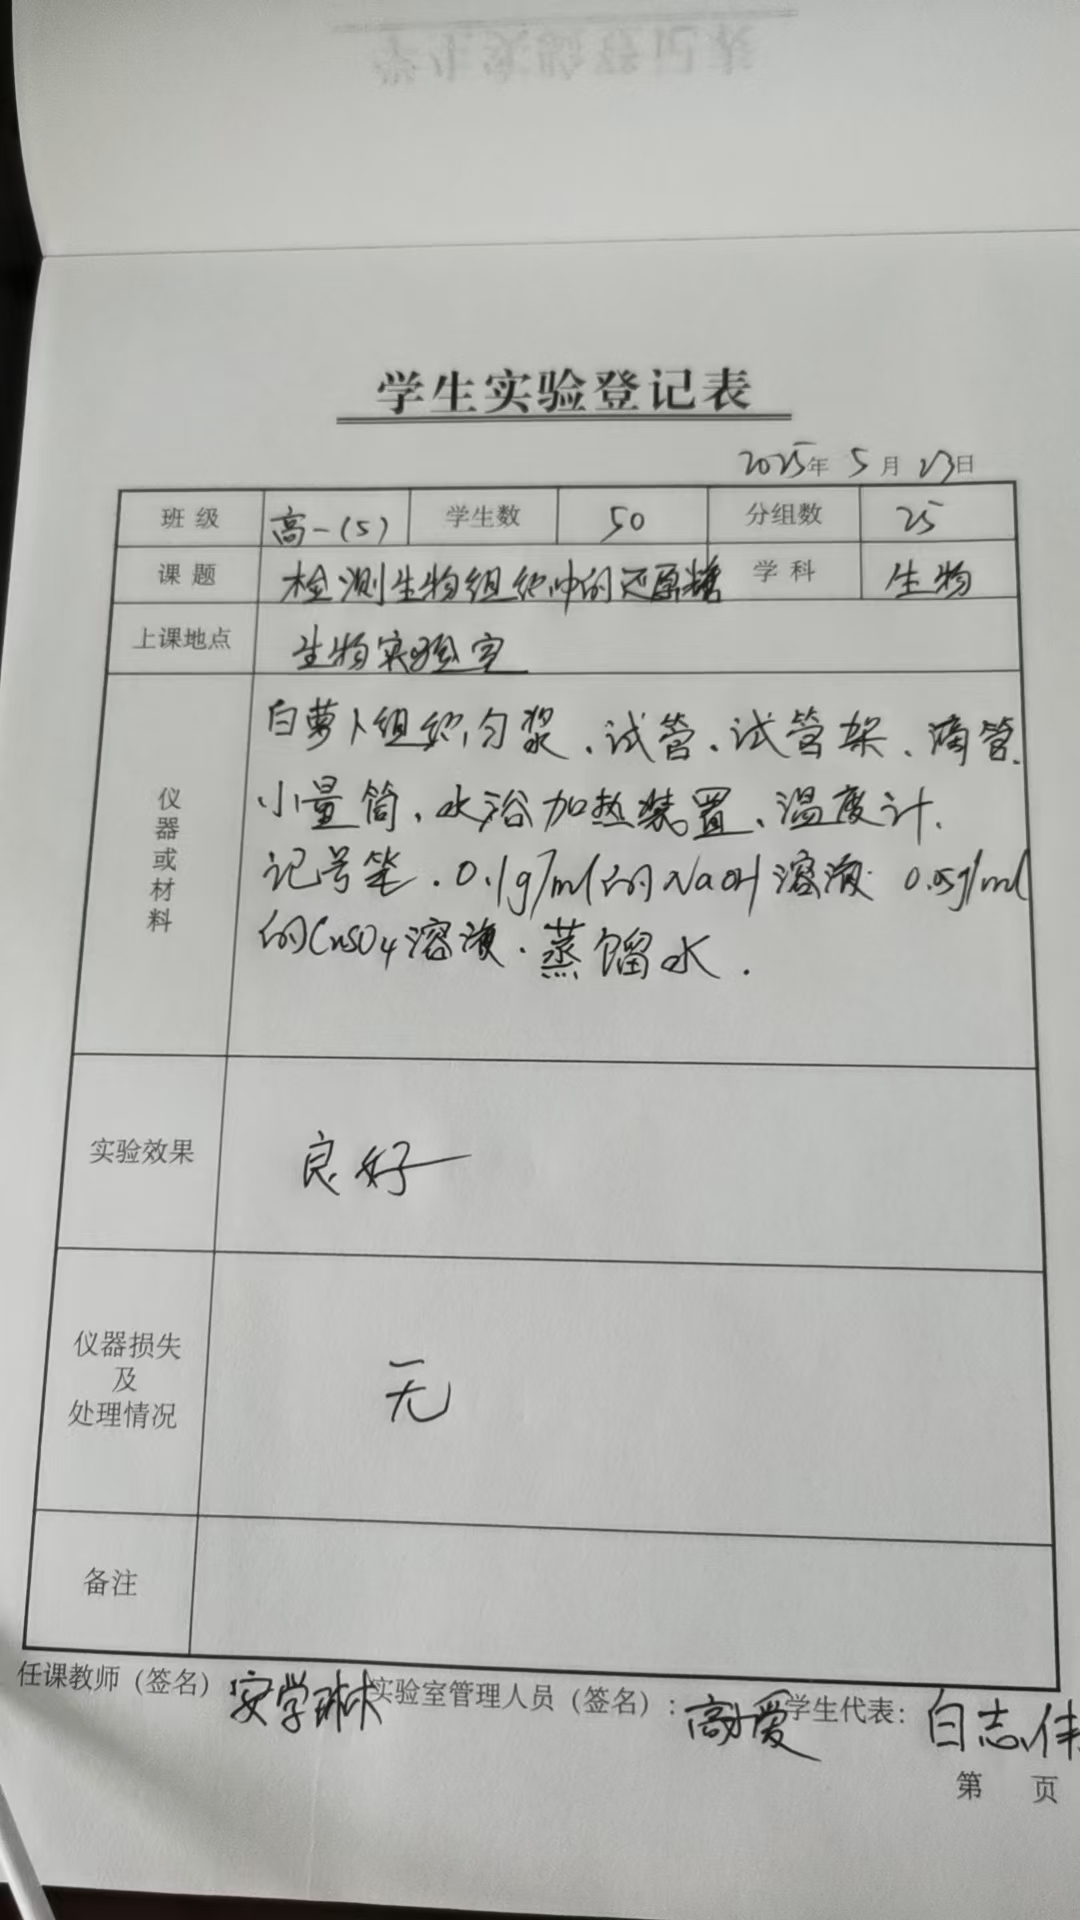 学生实验登记表
2025年 5月 23日
班级 高一(5) 学生数 50 分组数 25
课题 检测生物组织中的还原糖 学科 生物
上课地点 生物实验室
仪器或材料
白萝卜组织匀浆、试管、试管架、滴管、
小量筒、水浴加热装置、温度计、
记号笔.0.1g/ml的NaOH溶液.0.05g/ml
的CuSO4溶液.蒸馏水.
实验效果 良好
仪器损失
及
处理情况
无
备注
任课教师(签名) 安学琳 实验室管理人员(签名): 高爱 学生代表: 白志伟
第 页